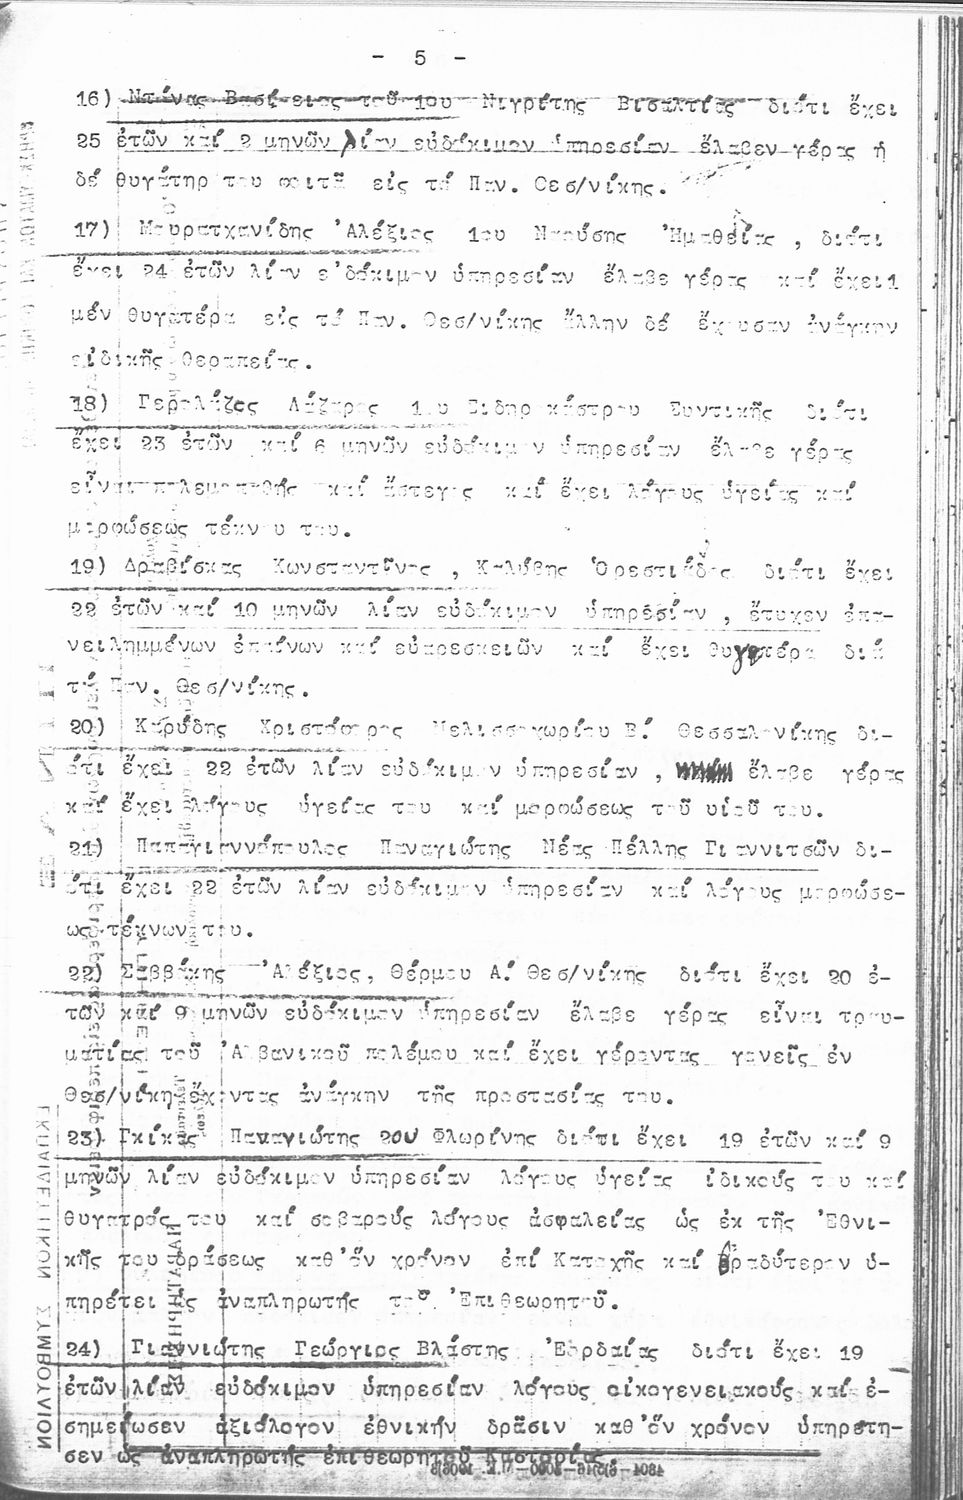 - 5 -
16) Ντίνας Βασί ειος τοῦ 1ου Νιγρίτης Βισαλτίας διότι ἔχει
25 ἐτῶν καί 2 μηνῶν λίαν εὐδόκιμον ὑπηρεσίαν ἔλαβεν γέρας ἡ
δέ θυγάτηρ του φοιτᾶ εἰς τό Παν. Θεσ/νίκης.
17) Μουρατχανίδης Ἀλέξιος 1ου Ναούσης Ἠμαθείας , διότι
ἔχει 24 ἐτῶν λίαν εὐδόκιμον ὑπηρεσίαν ἔλαβε γέρας καί ἔχει 1
μέν θυγατέρα εἰς τό Παν. Θεσ/νίκης ἄλλην δέ ἔχουσαν ἀνάγκην
εἰδικῆς θεραπείας.
18) Γερολάζος Λάζαρος 1ου Σιδηροκάστρου Συντικῆς διότι
ἔχει 23 ἐτῶν καί 6 μηνῶν εὐδόκιμον ὑπηρεσίαν ἔλαβε γέρας
εἶναι πολεμοπαθής καί ἄστεγος καί ἔχει λόγους ὑγείας καί
μορφώσεως τέκνου του.
19) Δραβίσκας Κωνσταντῖνος , Καλύβης Ὀρεστιάδος διότι ἔχει
22 ἐτῶν καί 10 μηνῶν λίαν εὐδόκιμον ὑπηρεσίαν , ἔτυχεν ἐπα-
νειλημμένων ἐπαίνων καί εὐαρεσκειῶν καί ἔχει θυγατέρα διά
τό Παν. Θεσ/νίκης.
20) Καρύδης Χριστόφορος Μελισσοχωρίου Β! Θεσσαλονίκης δι-
ότι ἔχει 22 ἐτῶν λίαν εὐδόκιμον ὑπηρεσίαν , ἔλαβε γέρας
καί ἔχει λόγους ὑγείας του καί μορφώσεως τοῦ υἱοῦ του.
21) Παπαγιαννόπουλος Παναγιώτης Νέας Πέλλης Γιαννιτσῶν δι-
ότι ἔχει 22 ἐτῶν λίαν εὐδόκιμον ὑπηρεσίαν καί λόγους μορφώσε-
ως τέκνων του.
22) Σαββάκης Ἀλέξιος, Θέρμου Α! Θεσ/νίκης διότι ἔχει 20 ἐ-
τῶν καί 9 μηνῶν εὐδόκιμον ὑπηρεσίαν ἔλαβε γέρας εἶναι τραυ-
ματίας τοῦ Ἀλβανικοῦ πολέμου καί ἔχει γέροντας γονεῖς ἐν
Θεσ/νίκῃ ἔχοντας ἀνάγκην τῆς προστασίας του.
23) Γκίκας Παναγιώτης 2ου Φλωρίνης διότι ἔχει 19 ἐτῶν καί 9
μηνῶν λίαν εὐδόκιμον ὑπηρεσίαν λόγους ὑγείας ἰδικούς του καί
θυγατρός του καί σοβαρούς λόγους ἀσφαλείας ὡς ἐκ τῆς Ἐθνι-
κῆς του δράσεως καθ'ὅν χρόνον ἐπί Κατοχῆς καί βραδύτερον ὑ-
πηρέτει ὡς ἀναπληρωτής τοῦ Ἐπιθεωρητοῦ.
24) Γιαννιώτης Γεώργιος Βλάστης Ἐορδαίας διότι ἔχει 19
ἐτῶν λίαν εὐδόκιμον ὑπηρεσίαν λόγους οἰκογενειακούς καί ἐ-
σημείωσεν ἀξιόλογον ἐθνικήν δρᾶσιν καθ'ὅν χρόνον ὑπηρετη-
σεν ὡς ἀναπληρωτής ἐπιθεωρητοῦ Καστορίας.
ΕΚΠΑΙΔΕΥΤΙΚΟΝ ΣΥΜΒΟΥΛΙΟΝ